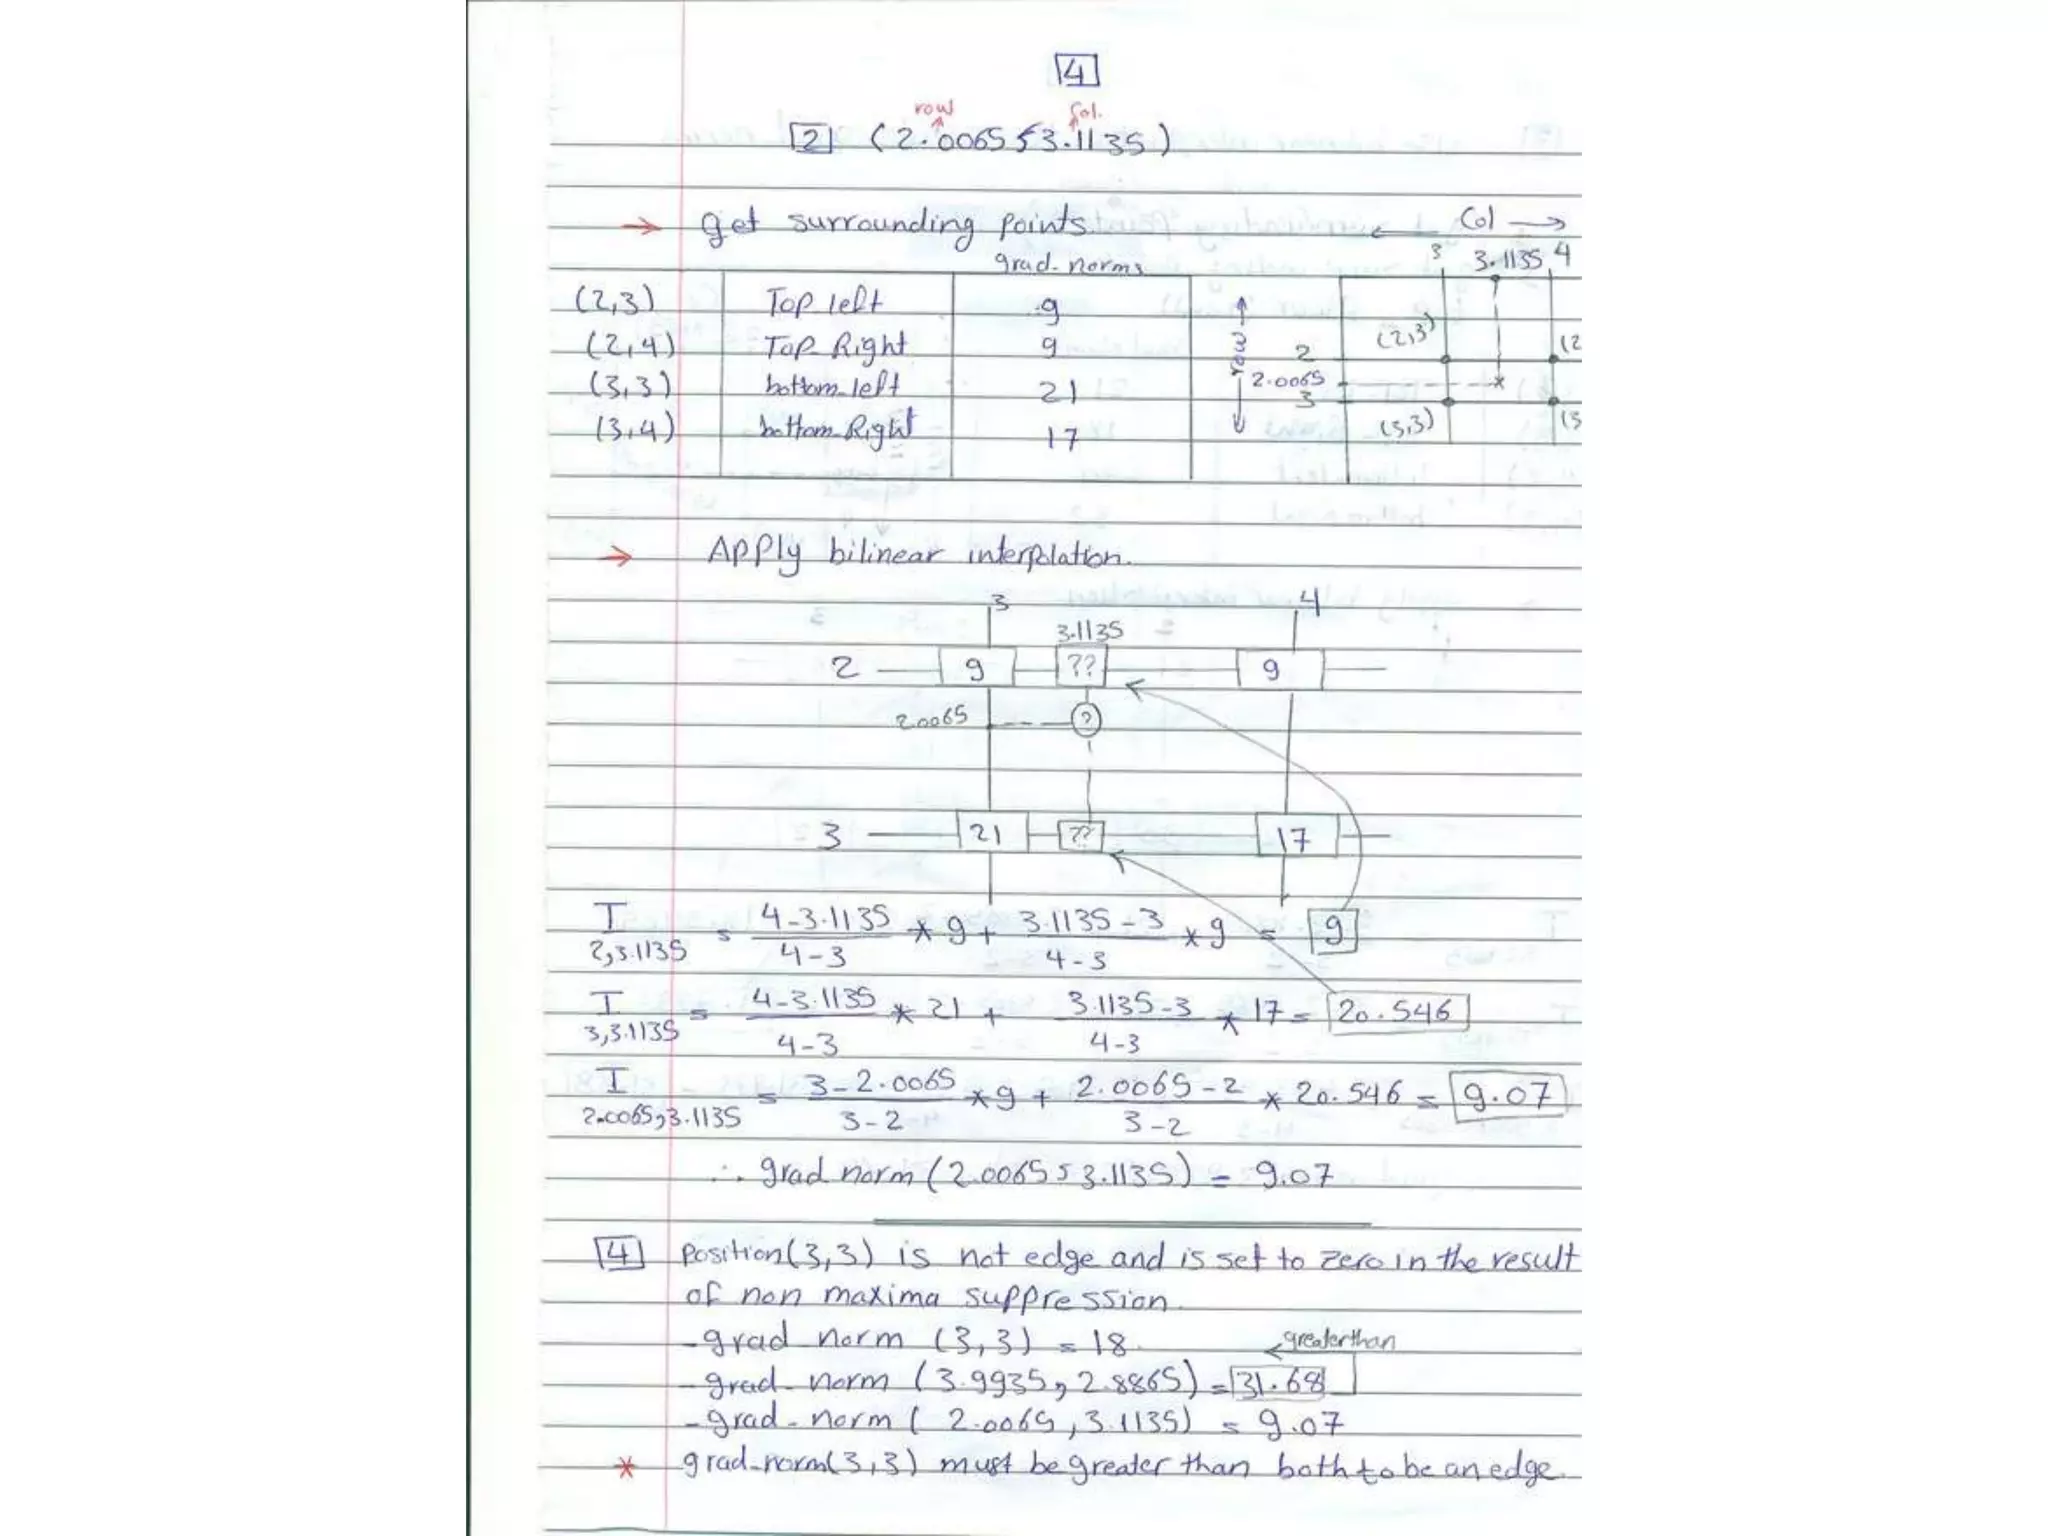 4
row col.
2 (2.0065, 3.1135)
→ get surrounding points.
grad-norms
(2,3) Top-left 9
(2,4) Top-Right 9
(3,3) bottom-left 21
(3,4) bottom-Right 17
← Col →
3 3.1135 4
← row →
(2,3)
2 (2
2.0065
3
(3,3) (3
→ Apply bilinear interpolation.
3 4
3.1135
2 9 ?? 9
2.0065 ?
3 21 ?? 17
I 2,3.1135 = 4-3.1135 / 4-3 * 9 + 3.1135-3 / 4-3 * 9 = 9
I 3,3.1135 = 4-3.1135 / 4-3 * 21 + 3.1135-3 / 4-3 * 17 = 20.546
I 2.0065,3.1135 = 3-2.0065 / 3-2 * 9 + 2.0065-2 / 3-2 * 20.546 = 9.07
∴ grad norm (2.0065, 3.1135) = 9.07
4 position(3,3) is not edge and is set to zero in the result
of non maxima suppression.
-grad norm (3,3) = 18. ← greater than
-grad-norm (3.9935, 2.8865) = 31.68
-grad-norm ( 2.0065, 3.1135) = 9.07
* grad-norm(3,3) must be greater than both to be an edge.